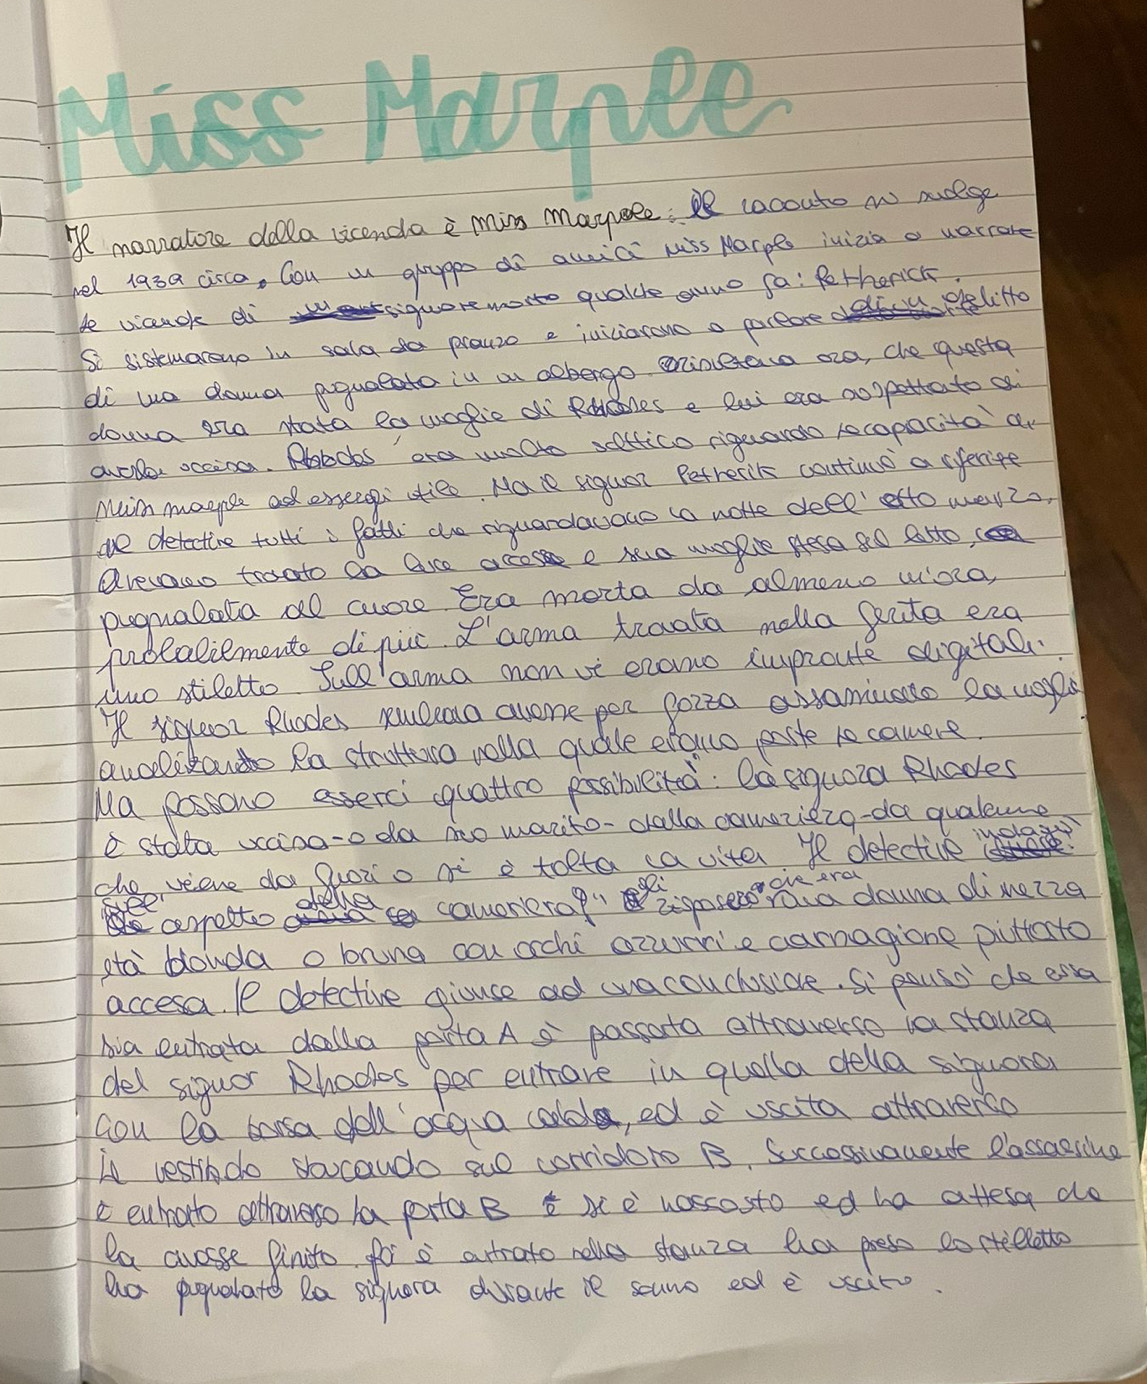 Miss Marple
Il narratore della vicenda è Miss Marple: il racconto si svolge
nel 1939 circa. Con un gruppo di amici Miss Marple inizia a narrare
le vicende di signore morto qualche anno fa: Petherick.
Si sistemarono in sala da pranzo e iniziarono a parlare delitto
di una donna pugnalata in un albergo. ora, che questa
donna era stata la moglie di Rhodes e lui era sospettato di
averla uccisa. Rhodes era molto scettico riguardo le capacità di
Miss marple ad essergli utile. Ma il signor Petherik continuò a riferire
al detective tutti i fatti che riguardavano la notte dell'otto marzo,
avevano trovato la luce accesa e sua moglie stesa sul letto,
pugnalata al cuore. Era morta da almeno un'ora,
probabilmente di più. L'arma trovata nella ferita era
uno stiletto. Sull'arma non vi erano impronte digitali.
Il signor Rhodes sembrava avere per forza assassinato la moglie
analizzando la struttura nella quale erano poste le camere.
Ma possono esserci quattro possibilità: la signora Rhodes
è stata uccisa-o da suo marito-dalla cameriera-da qualcuno
che viene da fuori o si è tolta la vita. Il detective indagò
sull'aspetto della cameriera. gli risposero che era una donna di mezza
età blonda o bruna con occhi azzurri e carnagione piuttosto
accesa. Il detective giunse ad una conclusione. Si pensò che essa
sia entrata dalla porta A è passata attraverso la stanza
del signor Rhodes per entrare in quella della signora
con la borsa dell'acqua calda, ed è uscita attraverso
il vestibolo sbucando sul corridoio B. Successivamente l'assassino
è entrato attraverso la porta B si è nascosto ed ha atteso che
la avesse finito. Poi è entrato nella stanza ha preso lo stilletto
ha pugnalato la signora durante il sonno ed è uscito.